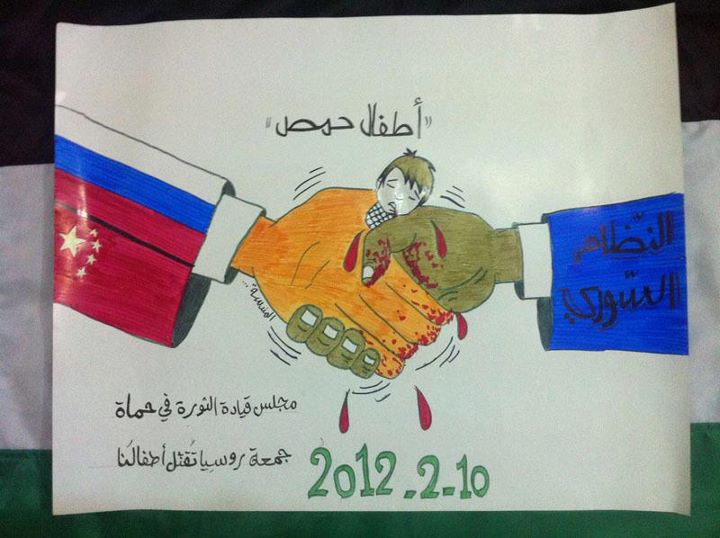 "أطفال حمص"
النّظام
السّوري
المندسة...
مجلس قيادة الثورة في حماة
جمعة روسيا تُقتل أطفالُنا
2012-2-10